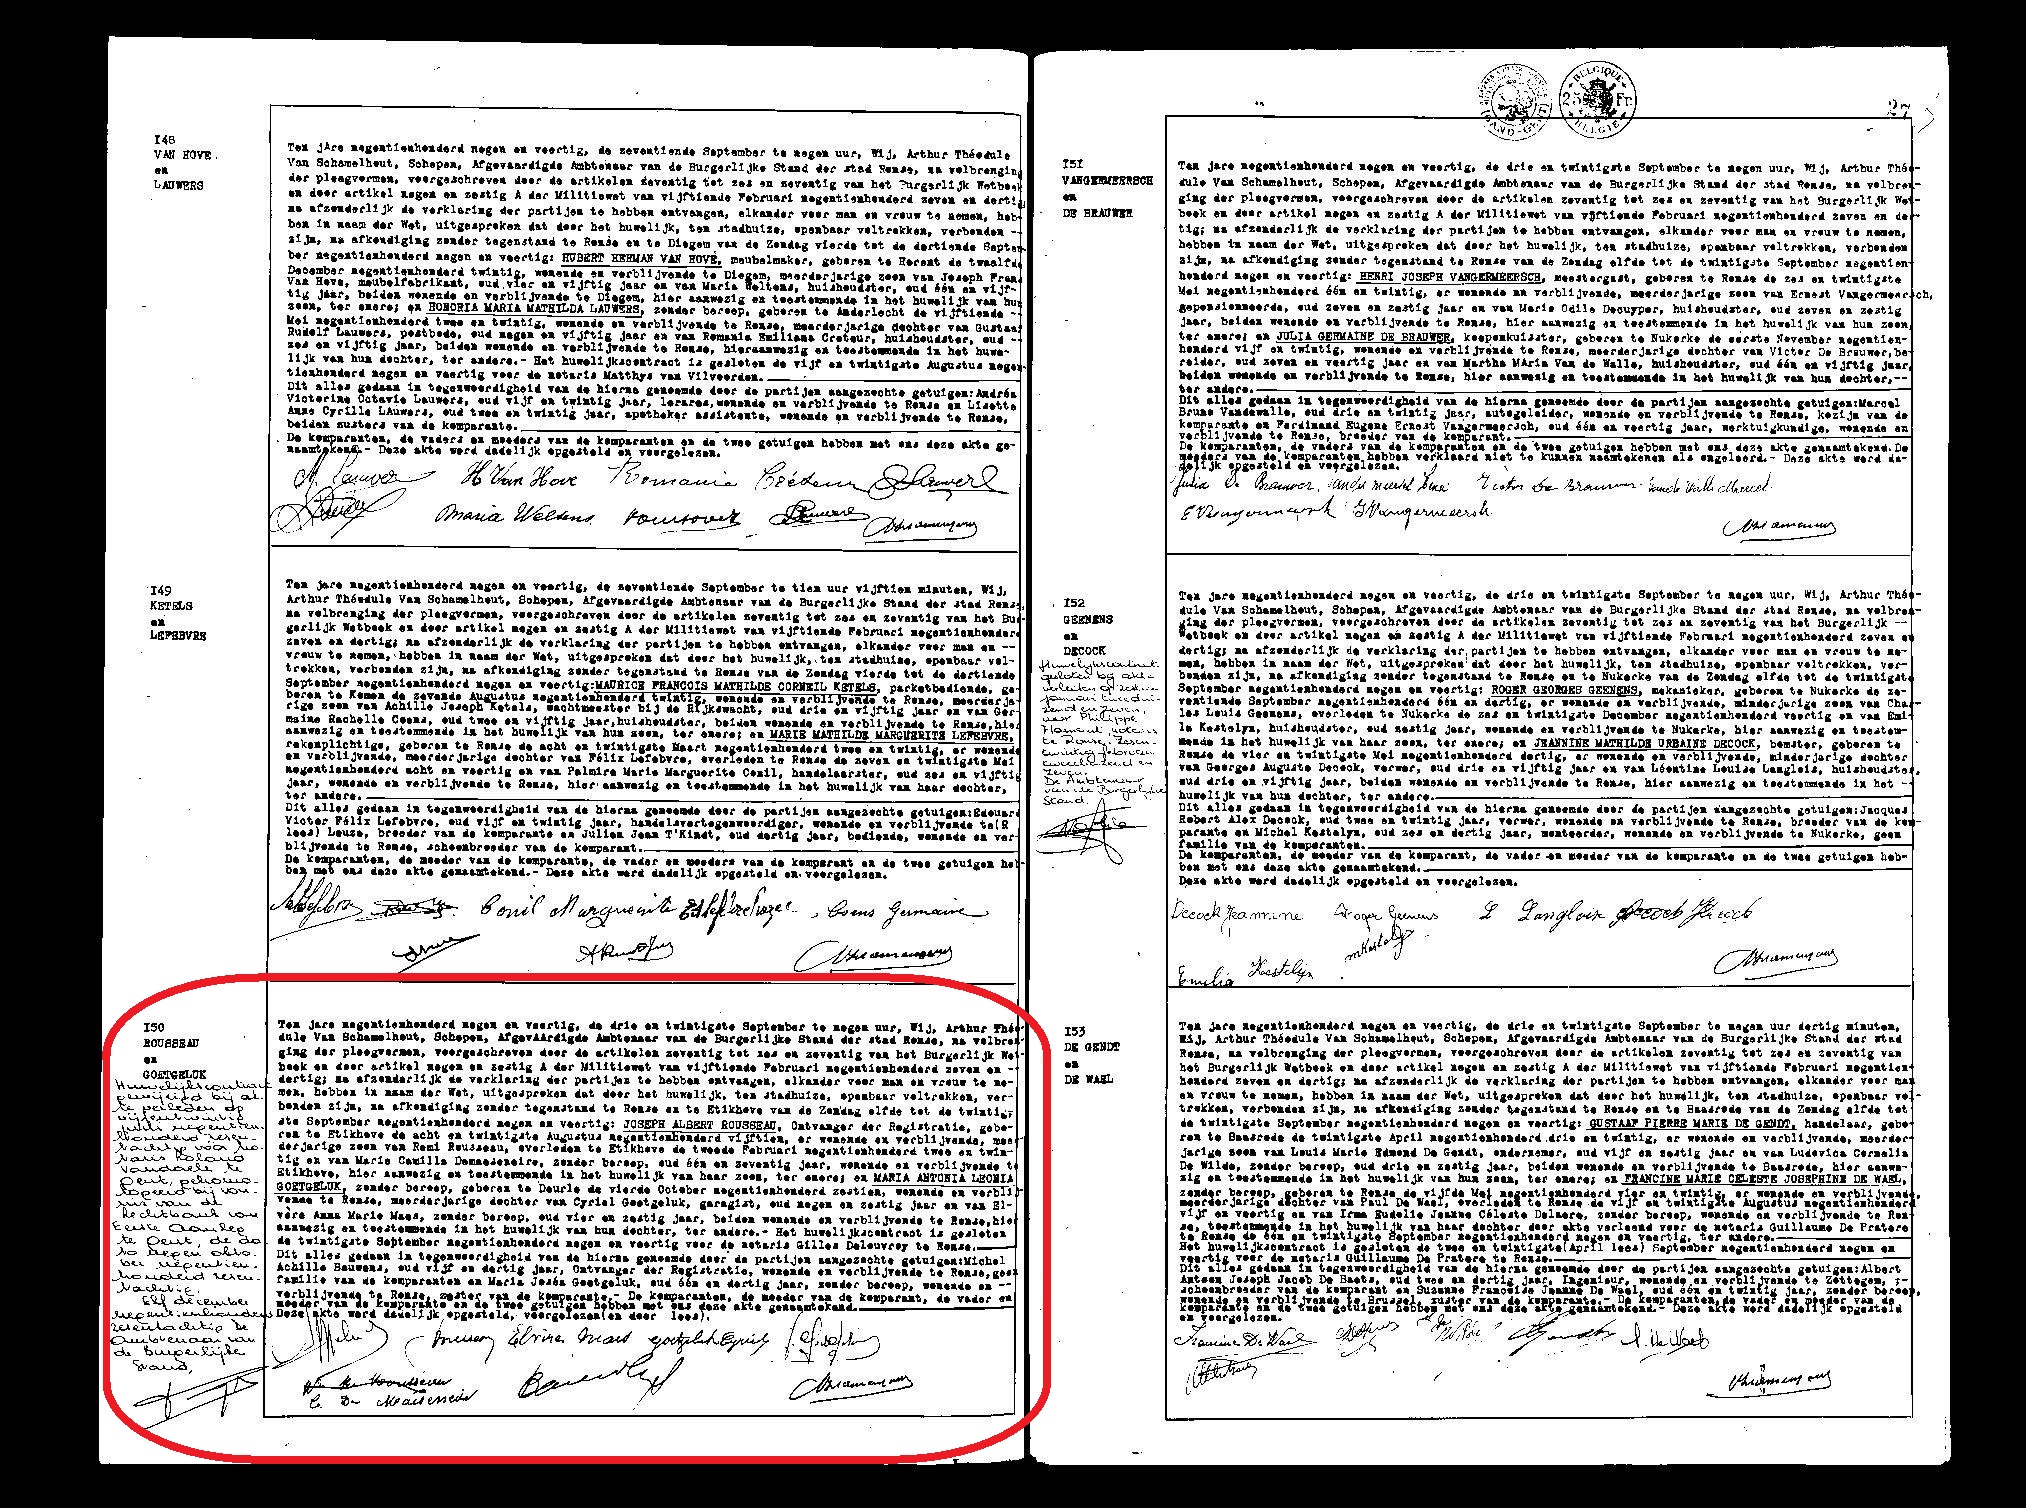 148
VAN HOVE
en
LAUWERS
Ten jAre negentienhonderd negen en veertig, de zeventiende September te negen uur, Wij, Arthur Théodule
Van Schamelhout, Schepen, Afgevaardigde Ambtenaar van de Burgerlijke Stand der stad Ronse, na volbrenging
der pleegvormen, voorgeschreven door de artikelen zeventig tot zes en zeventig van het Burgerlijk Wetboek
en door artikel negen en zestig A der Militiewet van vijftiende Februari negentienhonderd zeven en dertig
na afzonderlijk de verklaring der partijen te hebben ontvangen, elkander voor man en vrouw te nemen, heb-
ben in naam der Wet, uitgesproken dat door het huwelijk, ten stadhuize, openbaar voltrokken, verbonden --
zijn, na afkondiging zonder tegenstand te Ronse en te Diegem van de Zondag vierde tot de dertiende Septem-
ber negentienhonderd negen en veertig: HUBERT HERMAN VAN HOVE, meubelmaker, geboren te Herent de twaalfde
December negentienhonderd twintig, wonende en verblijvende te Diegem, meerderjarige zoon van Joseph Frans
Van Hove, meubelfabrikant, oud vier en vijftig jaar en van Maria Weltens, huishoudster, oud één en vijf-
tig jaar, beiden wonende en verblijvende te Diegem, hier aanwezig en toestemmende in het huwelijk van hun
zoon, ter enere; en HONORIA MARIA MATHILDA LAUWERS, zonder beroep, geboren te Anderlecht de vijftiende --
Mei negentienhonderd twee en twintig, wonende en verblijvende te Ronse, meerderjarige dochter van Gustaaf
Rudolf Lauwers, postbode, oud negen en vijftig jaar en van Romania Emiliana Creteur, huishoudster, oud --
zes en vijftig jaar, beiden wonende en verblijvende te Ronse, hieraanwezig en toestemmende in het huwe-
lijk van hun dochter, ter andere.- Het huwelijkscontract is gesloten de vijf en twintigste Augustus negen-
tienhonderd negen en veertig voor de notaris Matthys van Vilvoorden.
Dit alles gedaan in tegenwoordigheid van de hierna genoemde door de partijen aangezochte getuigen:Andréa
Victorine Octavie Lauwers, oud vijf en twintig jaar, lerares,wonende en verblijvende te Ronse en Lisette
Anne Cyrille LAuwers, oud twee en twintig jaar, apotheker assistente, wonende en verblijvende te Ronse,
beiden zusters van de komparante.
De komparanten, de vaders en moeders van de komparanten en de twee getuigen hebben met ons deze akte ge-
naamtekend.- Deze akte werd dadelijk opgesteld en voorgelezen.
H Van Hove Romania Créteur
Maria Weltens
149
KETELS
en
LEFEBVRE
Ten jare negentienhonderd negen en veertig, de zeventiende September te tien uur vijftien minuten, Wij,
Arthur Théodule Van Schamelhout, Schepen, Afgevaardigde Ambtenaar van de Burgerlijke Stand der stad Ronse,
na volbrenging der pleegvormen, voorgeschreven door de artikelen zeventig tot zes en zeventig van het Bur-
gerlijk Wetboek en door artikel negen en zestig A der Militiewet van vijftiende Februari negentienhonderd
zeven en dertig; na afzonderlijk de verklaring der partijen te hebben ontvangen, elkander voor man en --
vrouw te nemen, hebben in naam der Wet, uitgesproken dat door het huwelijk, ten stadhuize, openbaar vol-
trokken, verbonden zijn, na afkondiging zonder tegenstand te Ronse van de Zondag vierde tot de dertiende
September negentienhonderd negen en veertig:MAURICE FRANCOIS MATHILDE CORNEIL KETELS, parketbediende, ge-
boren te Komen de zevende Augustus negentienhonderd twintig, wonende en verblijvende te Ronse, meerderja-
rige zoon van Achille Joseph Ketels, wachtmeester bij de Rijkswacht, oud drie en vijftig jaar en van Ger-
maine Rachelle Coens, oud twee en vijftig jaar,huishoudster, beiden wonende en verblijvende te Ronse,hier
aanwezig en toestemmende in het huwelijk van hun zoon, ter enere; en MARIE MATHILDE MARGUERITE LEFEBVRE,
rekenplichtige, geboren te Ronse de acht en twintigste Maart negentienhonderd twee en twintig, er wonende
en verblijvende, meerderjarige dochter van Félix Lefebvre, overleden te Ronse de zeven en twintigste Mei
negentienhonderd acht en veertig en van Palmire Marie Marguerite Conil, handelaarster, oud zes en vijftig
jaar, wonende en verblijvende te Ronse, hier aanwezig en toestemmende in het huwelijk van haar dochter,
ter andere.
Dit alles gedaan in tegenwoordigheid van de hierna genoemde door de partijen aangezochte getuigen:Edouard
Victor Félix Lefebvre, oud vijf en twintig jaar, handelsvertegenwoordiger, wonende en verblijvende te(R
lees) Leuze, broeder van de komparante en Julien Jean T'Kindt, oud dertig jaar, bediende, wonende en ver-
blijvende te Ronse, schoonbroeder van de komparant.
De komparanten, de moeder van de komparante, de vader en moeders van de komparant en de twee getuigen heb-
ben met ons deze akte genaamtekend.- Deze akte werd dadelijk opgesteld en voorgelezen.
Conil Marguerite Coens Germaine
150
ROUSSEAU
en
GOETGELUK
Huwelijkscontract
gewijzigd bij ak-
te verleden op
vijfentwintig
juli negentien-
honderd zesen-
tachtig voor no-
taris Roland
Vandaele te
Gent, gehomo-
logeerd bij von-
nis van de
Rechtbank van
Eerste Aanleg
te Gent, de da-
to negen okto-
ber negentien-
honderd zesen-
tachtig.
Elf december
negentienhonderd
zesentachtig De
Ambtenaar van
de Burgerlijke
Stand,
Ten jare negentienhonderd negen en veertig, de drie en twintigste September te negen uur, Wij, Arthur Théo-
dule Van Schamelhout, Schepen, AfgevAardigde Ambtenaar van de Burgerlijke Stand der stad Ronse, na volbren-
ging der pleegvormen, voorgeschreven door de artikelen zeventig tot zes en zeventig van het Burgerlijk Wet-
boek en door artikel negen en zestig A der Militiewet van vijftiende Februari negentienhonderd zeven en --
dertig; na afzonderlijk de verklaring der partijen te hebben ontvangen, elkander voor man en vrouw te ne-
men, hebben in naam der Wet, uitgesproken dat door het huwelijk, ten stadhuize, openbaar voltrokken, ver-
bonden zijn, na afkondiging zonder tegenstand te Ronse en te Etikhove van de Zondag elfde tot de twintig-
ste September negentienhonderd negen en veertig: JOSEPH ALBERT ROUSSEAU, Ontvanger der Registratie, gebo-
ren te Etikhove de acht en twintigste Augustus negentienhonderd vijftien, er wonende en verblijvende, meer-
derjarige zoon van Remi Rousseau, overleden te Etikhove de tweede Februari negentienhonderd twee en twin-
tig en van Marie Camilla Demaeseneire, zonder beroep, oud één en zeventig jaar, wonende en verblijvende te
Etikhove, hier aanwezig en toestemmende in het huwelijk van haar zoon, ter enere; en MARIA ANTONIA LEONIA
GOETGELUK, zonder beroep, geboren te Deurle de vierde October negentienhonderd zestien, wonende en verblij-
vende te Ronse, meerderjarige dochter van Cyriel Goetgeluk, garagist, oud negen en zestig jaar en van El-
vère Anna Marie Maes, zonder beroep, oud vier en zestig jaar, beiden wonende en verblijvende te Ronse,hier
aanwezig en toestemmende in het huwelijk van hun dochter, ter andere.- Het huwelijkscontract is gesloten
de twintigste September negentienhonderd negen en veertig voor de notaris Gilles Delouvroy te Ronse.
Dit alles gedaan in tegenwoordigheid van de hierna genoemde door de partijen aangezochte getuigen:Michel
Achille Bauwens, oud vijf en dertig jaar, Ontvanger der Registratie, wonende en verblijvende te Ronse,geen
familie van de komparanten en Maria Jesés Goetgeluk, oud één en dertig jaar, zonder beroep, wonende en
verblijvende te Ronse, zuster van de komparante.- De komparanten, de moeder van de komparant, de vader en
moeder van de komparante en de twee getuigen hebben met ons deze akte genaamtekend.
Deze akte werd dadelijk opgesteld, voorgelezen(en door lees).
Elvire Maes Goetgeluk Cyriel
BELGIQUE
25 Fr.
BELGIE
27
151
VANGERMEERSCH
en
DE BRAUWER
Ten jare negentienhonderd negen en veertig, de drie en twintigste September te negen uur, Wij, Arthur Théo-
dule Van Schamelhout, Schepen, Afgevaardigde Ambtenaar van de Burgerlijke Stand der stad Ronse, na volbren-
ging der pleegvormen, voorgeschreven door de artikelen zeventig tot zes en zeventig van het Burgerlijk Wet-
boek en door artikel negen en zestig A der Militiewet van vijftiende Februari negentienhonderd zeven en der-
tig; na afzonderlijk de verklaring der partijen te hebben ontvangen, elkander voor man en vrouw te nemen,
hebben in naam der Wet, uitgesproken dat door het huwelijk, ten stadhuize, openbaar voltrokken, verbonden
zijn, na afkondiging zonder tegenstand te Ronse van de Zondag elfde tot de twintigste September negentien-
honderd negen en veertig: HENRI JOSEPH VANGERMEERSCH, meestergast, geboren te Ronse de zes en twintigste
Mei negentienhonderd één en twintig, er wonende en verblijvende, meerderjarige zoon van Ernest Vangermeersch,
gepensionneerde, oud zeven en zestig jaar en van Marie Odile Decuyper, huishoudster, oud zeven en zestig
jaar, beiden wonende en verblijvende te Ronse, hier aanwezig en toestemmende in het huwelijk van hun zoon
ter enere; en JULIA GERMAINE DE BRAUWER, keepenkuister, geboren te Nukerke de eerste November negentien-
honderd vijf en twintig, wonende en verblijvende te Ronse, meerderjarige dochter van Victor De Brauwer,be-
reider, oud zeven en veertig jaar en van Martha MAria Van de Walle, huishoudster, oud één en vijftig jaar,
beiden wonende en verblijvende te Ronse, hier aanwezig en toestemmende in het huwelijk van hun dochter,--
ter andere.
Dit alles gedaan in tegenwoordigheid van de hierna genoemde door de partijen aangezochte getuigen:Marcel
Bruno Vandewalle, oud drie en twintig jaar, autogeleider, wonende en verblijvende te Ronse, kozijn van de
komparante en Ferdinand Eugene Ernest Vangermeersch, oud één en veertig jaar, werktuigkundige, wonende en
verblijvende te Ronse, broeder van de komparant.
De komparanten, de vaders van de komparanten en de twee getuigen hebben met ons deze akte genaamtekend.De
moeders van de komparanten hebben verklaard niet te kunnen naamtekenen als ongeleerd.- Deze akte werd da-
delijk opgesteld en voorgelezen.
Julia De Brauwer Victor De Brauwer
E Vangermeersch
152
GEENENS
en
DECOCK
Huwelijkscontract
gesloten bij akte
verleden op zestien
januari tweedui-
zend en zeven,
voor Philippe
Flamant, notaris
te Ronse. Zesen-
twintig februari
tweeduizend en
zeven.
De Ambtenaar
van de Burgerlijke
Stand.
Ten jare negentienhonderd negen en veertig, de drie en twintigste September te negen uur, Wij, Arthur Théo-
dule Van Schamelhout, Schepen, Afgevaardigde Ambtenaar van de Burgerlijke Stand der stad Ronse, na volbren-
ging der pleegvormen, voorgeschreven door de artikelen zeventig tot zes en zeventig van het Burgerlijk --
Wetboek en door artikel negen en zestig A der Militiewet van vijftiende Februari negentienhonderd zeven en
dertig; na afzonderlijk de verklaring der partijen te hebben ontvangen, elkander voor man en vrouw te ne-
men, hebben in naam der Wet, uitgesproken dat door het huwelijk, ten stadhuize, openbaar voltrokken, ver-
bonden zijn, na afkondiging zonder tegenstand te Ronse en te Nukerke van de Zondag elfde tot de twintigste
September negentienhonderd negen en veertig: ROGER GEORGES GEENENS, mekanieker, geboren te Nukerke de ze-
ventiende September negentienhonderd één en dertig, er wonende en verblijvende, minderjarige zoon van Char-
les Louis Geenens, overleden te Nukerke de zes en twintigste December negentienhonderd veertig en van Emi-
lia Kestelyn, huishoudster, oud zes en veertig jaar, wonende en verblijvende te Nukerke, hier aanwezig en toestem-
mende in het huwelijk van haar zoon, ter enere; en JEANNINE MATHILDE URBAINE DECOCK, bomster, geboren te
Ronse de vier en twintigste Mei negentienhonderd dertig, er wonende en verblijvende, minderjarige dochter
van Georges Auguste Decock, verwer, oud drie en vijftig jaar en van Léontine Louise Langlois, huishoudster,
oud drie en vijftig jaar, beiden wonende en verblijvende te Ronse, hier aanwezig en toestemmende in het --
huwelijk van hun dochter, ter andere.
Dit alles gedaan in tegenwoordigheid van de hierna genoemde door de partijen aangezochte getuigen:Jacques
Robert Alex Decock, oud twee en twintig jaar, verwer, wonende en verblijvende te Ronse, broeder van de kom-
parante en Michel Kestelyn, oud zes en dertig jaar, monteerder, wonende en verblijvende te Nukerke, geen
familie van de komparanten.
De komparanten, de moeder van de komparant, de vader en moeder van de komparante en de twee getuigen heb-
ben met ons deze akte genaamtekend.
Deze akte werd dadelijk opgesteld en voorgelezen.
Decock Jeannine Roger Geenens L Langlois Decock
M Kestelyn
Emilia Kestelyn
153
DE GENDT
en
DE WAEL
Ten jare negentienhonderd negen en veertig, de drie en twintigste September te negen uur dertig minuten,
Wij, Arthur Théodule Van Schamelhout, Schepen, Afgevaardigde Ambtenaar van de Burgerlijke Stand der stad
Ronse, na volbrenging der pleegvormen, voorgeschreven door de artikelen zeventig tot zes en zeventig van
het Burgerlijk Wetboek en door artikel negen en zestig A der Militiewet van vijftiende Februari negentien-
honderd zeven en dertig; na afzonderlijk de verklaring der partijen te hebben ontvangen, elkander voor man
en vrouw te nemen, hebben in naam der Wet, uitgesproken dat door het huwelijk, ten stadhuize, openbaar vol-
trokken, verbonden zijn, na afkondiging zonder tegenstand te Ronse en te Baasrode van de Zondag elfde tot
de twintigste September negentienhonderd negen en veertig: GUSTAAF PIERRE MARIE DE GENDT, handelaar, gebo-
ren te Baasrode de twintigste April negentienhonderd drie en twintig, er wonende en verblijvende, meerder-
jarige zoon van Louis Marie Edmond De Gendt, ondernemer, oud vijf en zestig jaar en van Ludovica Cornelia
De Wilde, zonder beroep, oud drie en zestig jaar, beiden wonende en verblijvende te Baasrode, hier aanwe-
zig en toestemmende in het huwelijk van hun zoon, ter enere; en FRANCINE MARIE CELESTE JOSEPHINE DE WAEL,
zonder beroep, geboren te Ronse de vijfde Mei negentienhonderd vier en twintig, er wonende en verblijvende,
meerderjarige dochter van Paul De Wael, overleden te Ronse de vijf en twintigste Augustus negentienhonderd
vijf en veertig en van Irma Eudolie Jeanne Céleste Delnare, zonder beroep, wonende en verblijvende te Ron-
se, toestemmende in het huwelijk van haar dochter door akte verleend voor de notaris Guillaume De Pratere
te Ronse de één en twintigste September negentienhonderd negen en veertig, ter andere.
Het huwelijkscontract is gesloten de twee en twintigste(April lees) September negentienhonderd negen en
veertig voor de notaris Guillaume De Pratere te Ronse.
Dit alles gedaan in tegenwoordigheid van de hierna genoemde door de partijen aangezochte getuigen:Albert
Antoon Joseph Jacob De Baets, oud twee en dertig jaar, Ingenieur, wonende en verblijvende te Zottegem, :-
schoonbroeder van de komparant en Suzanne Francoise Jeanne De Wael, oud één en twintig jaar, zonder beroep,
wonende en verblijvende te Brussel, zuster van de komparante.- De komparanten, de vader en moeder van de
komparant en de twee getuigen hebben met ons deze akte genaamtekend.- Deze akte werd dadelijk opgesteld
en voorgelezen.
Francine De Wael